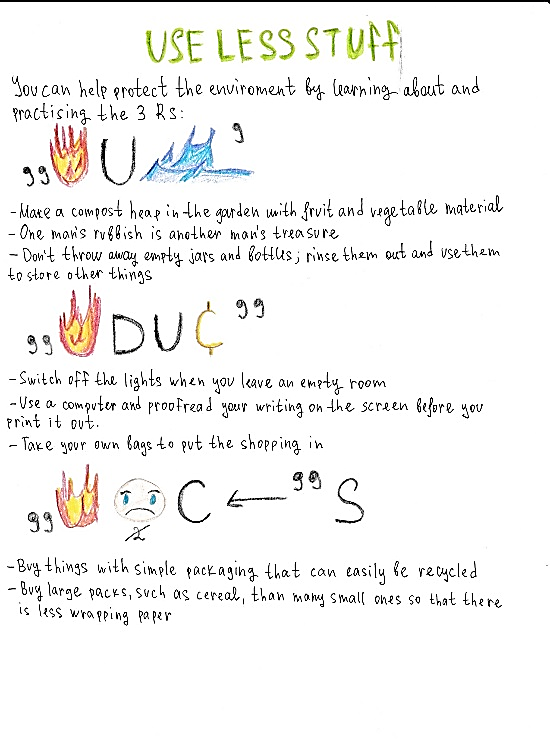 USE LESS STUFF
You can help protect the enviroment by learning about and
practising the 3 Rs:
,, U ,
- Make a compost heap in the garden with fruit and vegetable material
- One man's rubbish is another man's treasure
- Don't throw away empty jars and bottles; rinse them out and use them
to store other things
,, DU¢ ,,
- Switch off the lights when you leave an empty room
- Use a computer and proofread your writing on the screen before you
print it out.
- Take your own bags to put the shopping in
,, C ← ,, S
- Buy things with simple packaging that can easily be recycled
- Buy large packs, such as cereal, than many small ones so that there
is less wrapping paper